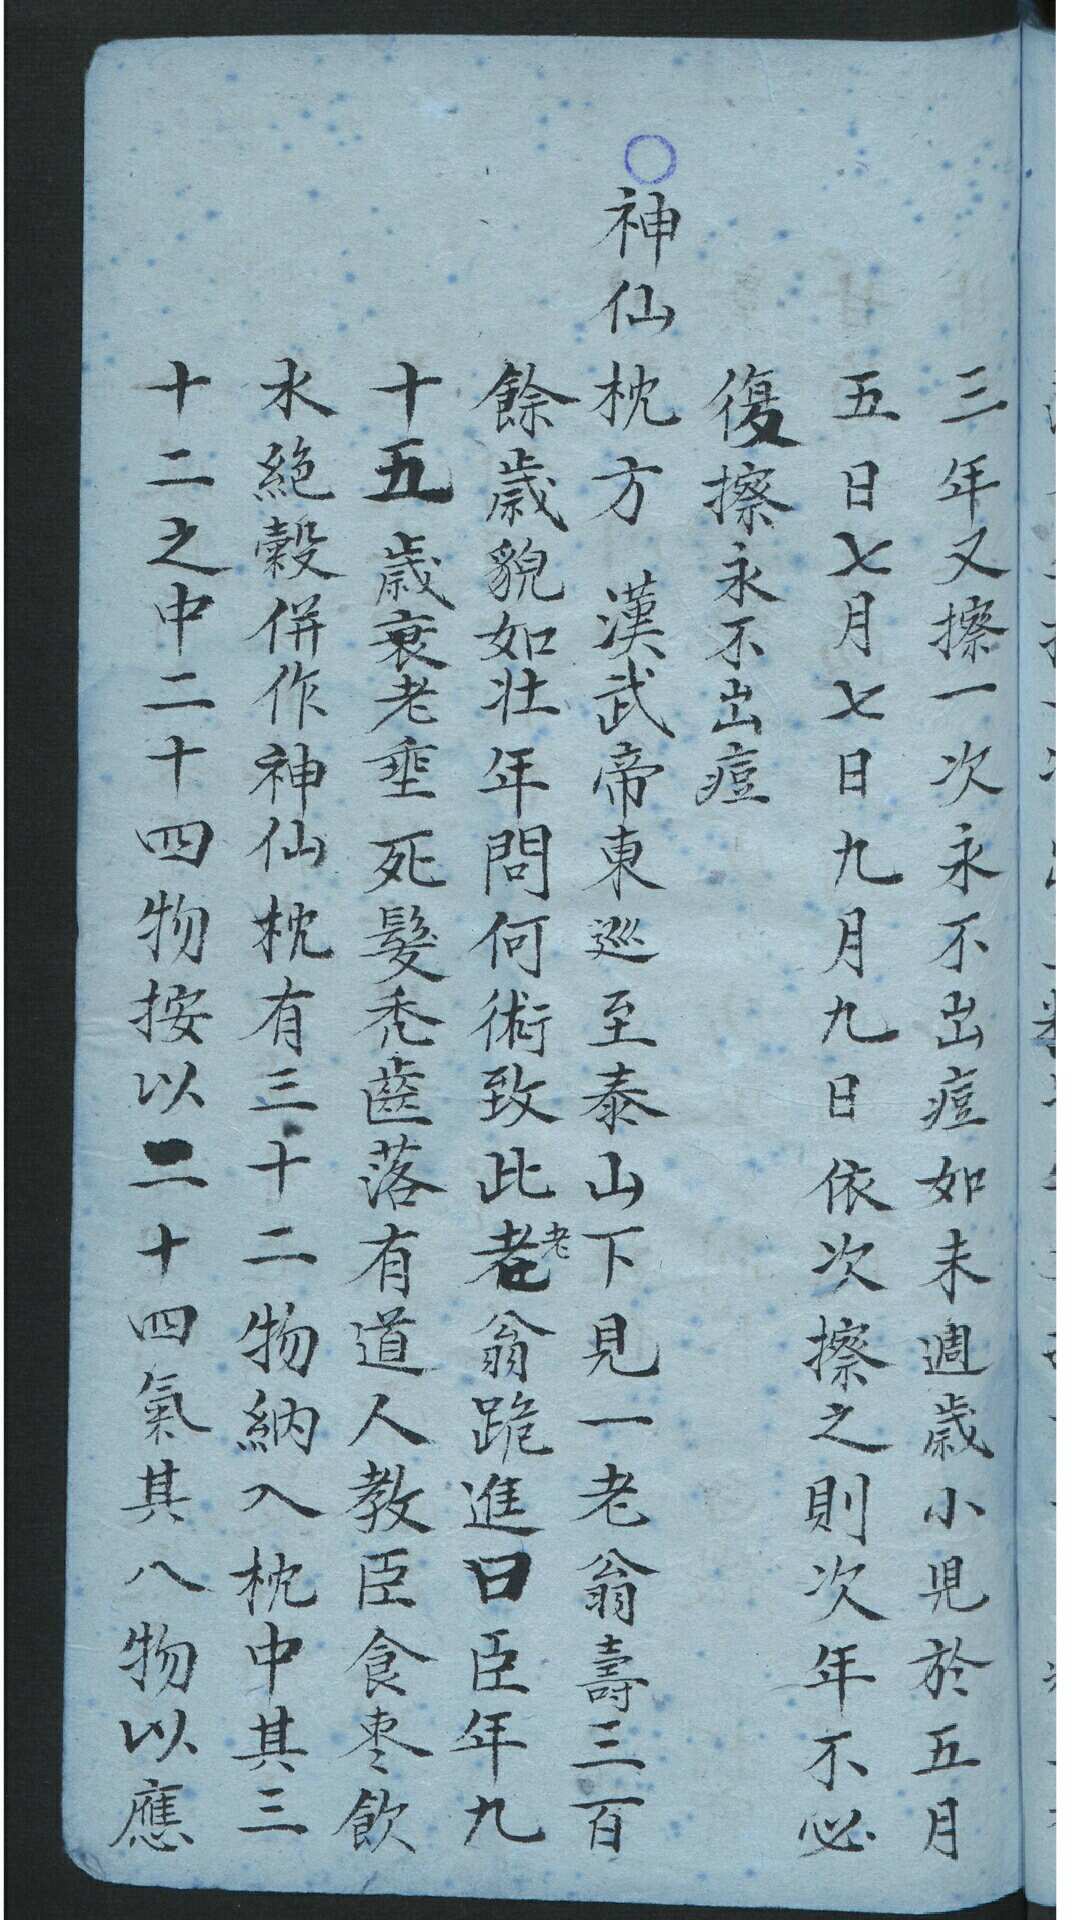 三年又擦一次永不出痘如未週歲小兒於五月
五日七月七日九月九日依次擦之則次年不必
復擦永不出痘
○神仙枕方 漢武帝東巡至泰山下見一老翁壽三百
餘歲貌如壯年問何術致此老老翁跪進曰臣年九
十五歲衰老垂死髮禿齒落有道人教臣食棗飲
水絕穀併作神仙枕有三十二物納入枕中其三
十二之中二十四物按以二十四氣其八物以應